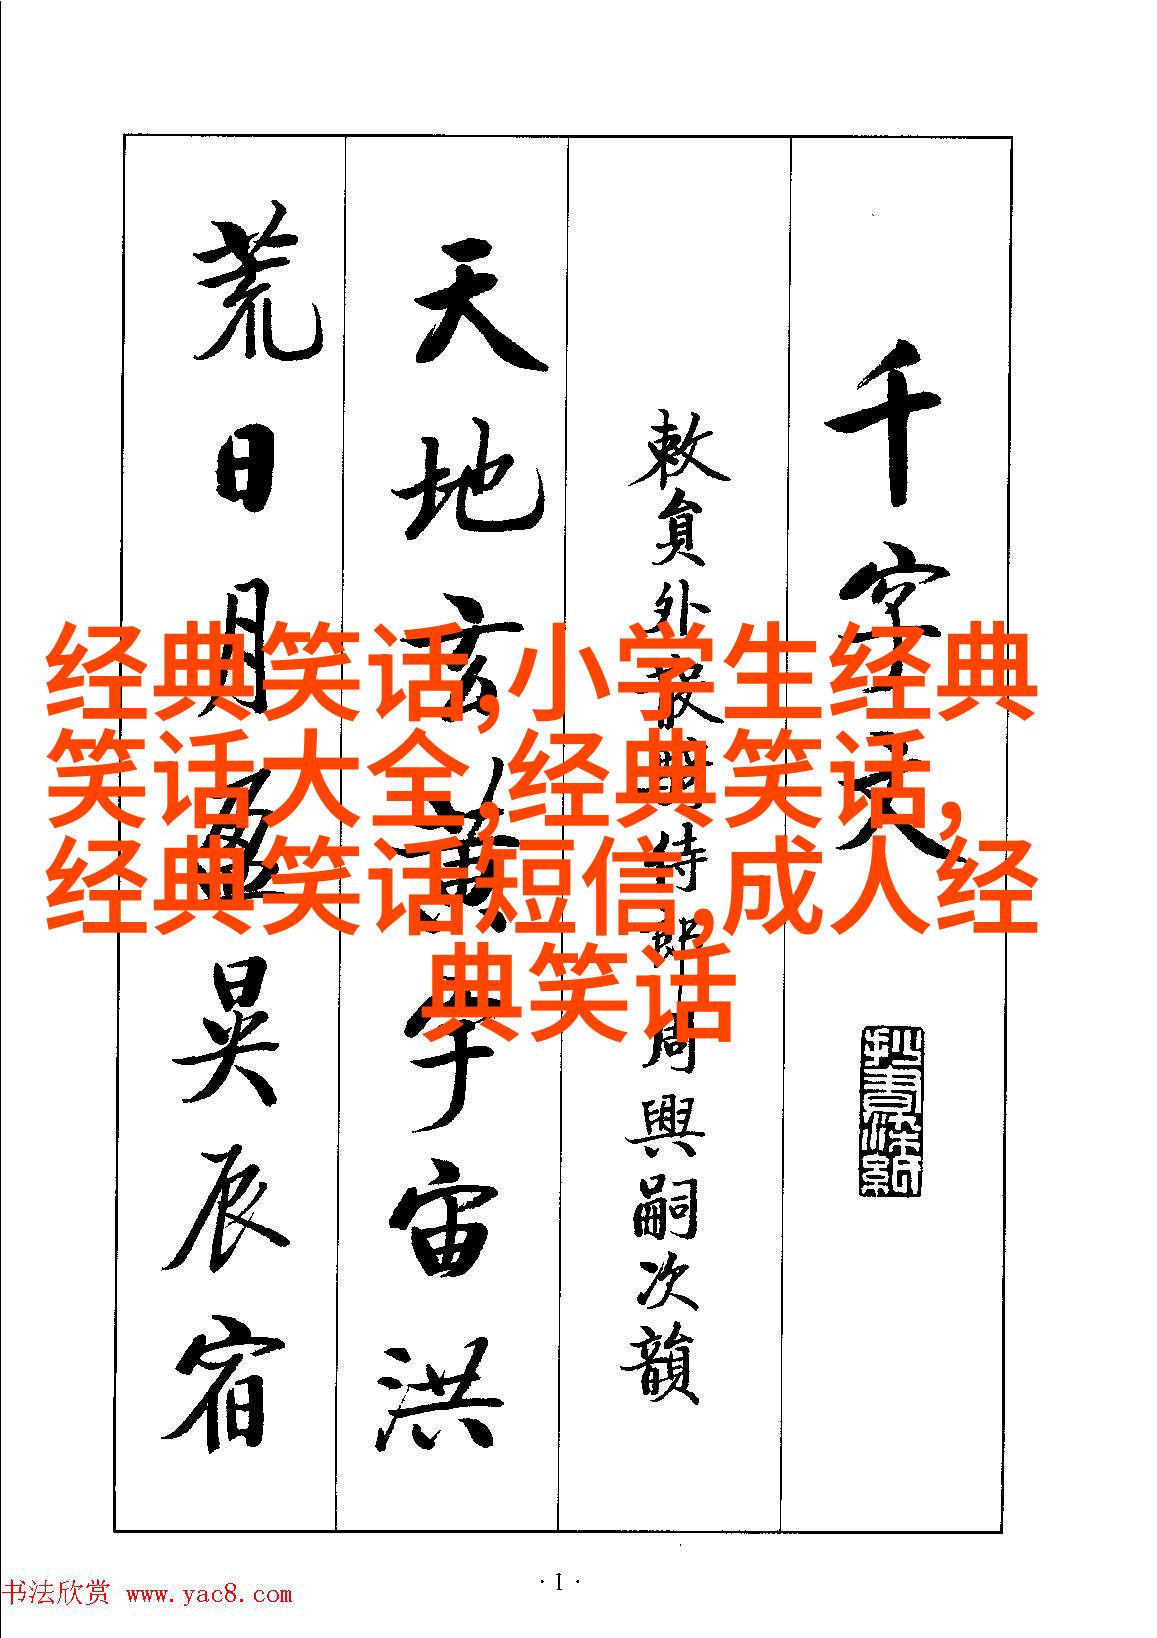 千字文
敕員外散騎侍郎周興嗣次韻
天地玄黃宇宙洪
荒日月盈昃辰宿
经典笑话,小学生经典
笑话大全,经典笑话,
经典笑话短信,成人经
典笑话
· 1 ·
书法欣赏 www.yac8.com